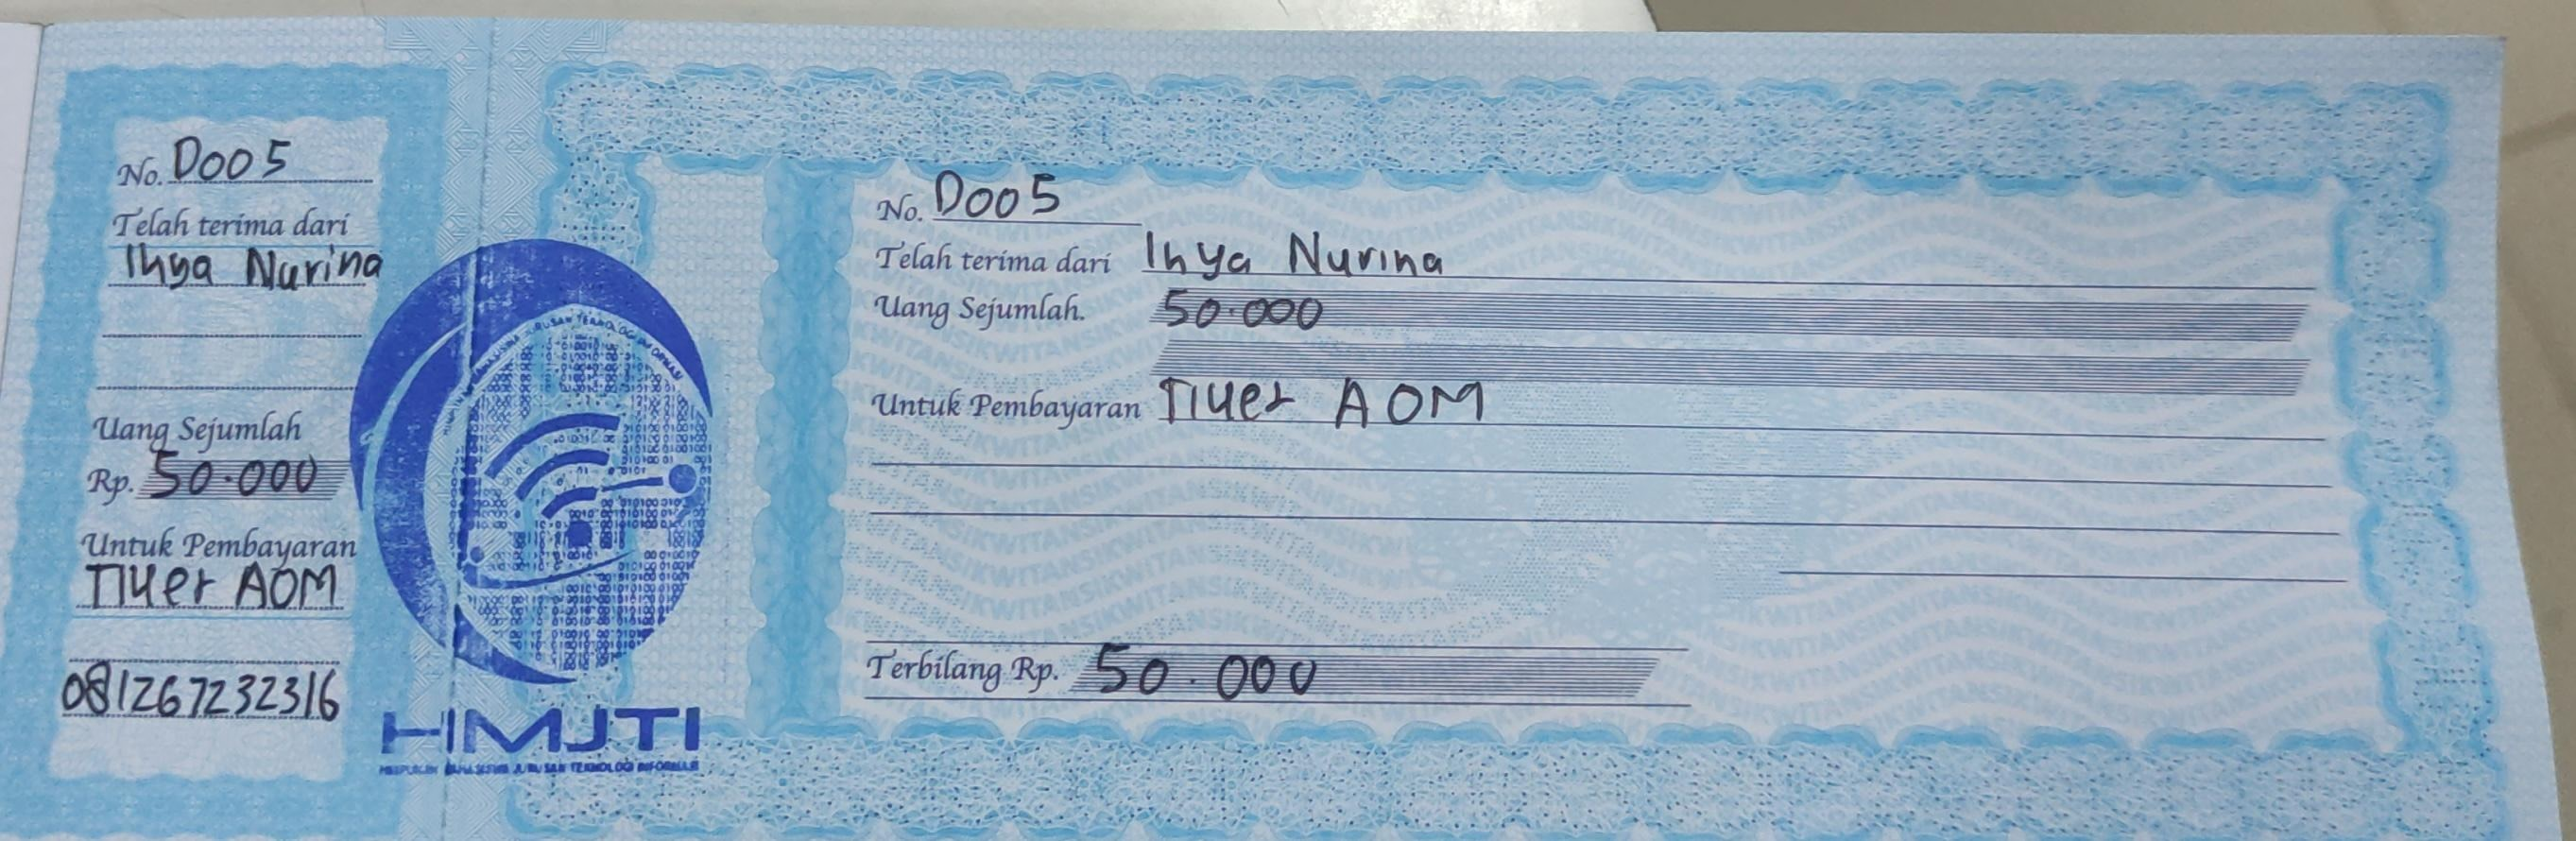 No. D005
Telah terima dari
Ihya Nurina
Uang Sejumlah
Rp. 50.000
Untuk Pembayaran
Tiket AOM
081267232316
HMJTI
HIMPUNAN MAHASISWA JURUSAN TEKNOLOGI INFORMASI
No. D005
Telah terima dari Ihya Nurina
Uang Sejumlah. 50.000
Untuk Pembayaran Tiket AOM
Terbilang Rp. 50.000